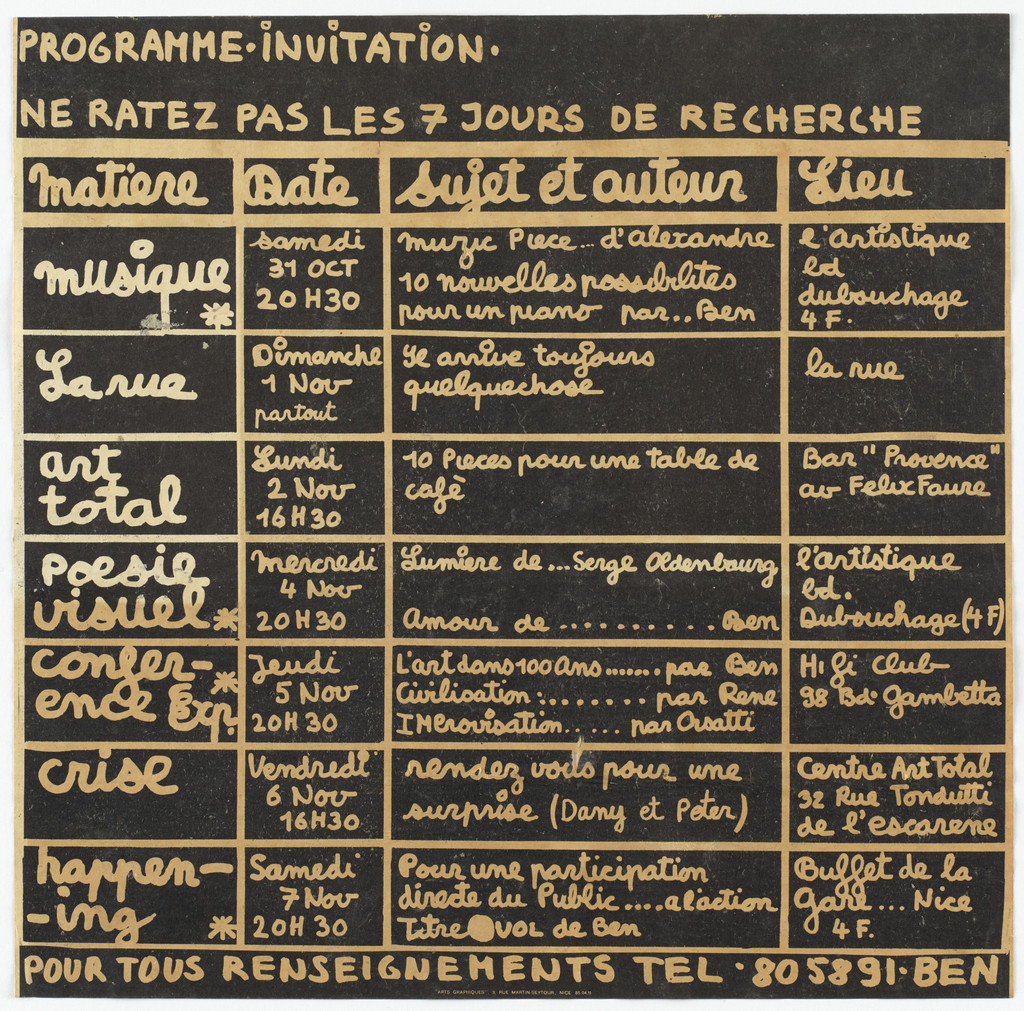 PROGRAMME·INVITATION·
NE RATEZ PAS LES 7 JOURS DE RECHERCHE
matière Date sujet et auteur Lieu
musique *
samedi
31 OCT
20H30
muzic Piece... d'alexandre
10 nouvelles possibilites
pour un piano par.. Ben
l'Artistique
bd
dubouchage
4 F.
La rue
Dimanche
1 Nov
partout
Je arrive toujours
quelquechose
la rue
art
total
Lundi
2 Nov
16H30
10 Pieces pour une table de
cafè
Bar "Provence"
av Felix Faure
Poesie
visuel *
Mercredi
4 Nov
20H30
Lumière de... Serge Oldenbourg
Amour de .......... Ben
l'artistique
bd.
Dubouchage (4 F)
confer-
ence Exp. *
Jeudi
5 Nov
20H30
L'art dans 100 Ans....... par Ben
Civilisation :....... par Rene
IMprovisation...... par Orsatti
Hi fi club
98 Bd. Gambetta
crise
Vendredi
6 Nov
16H30
rendez vous pour une
surprise (Dany et Peter)
Centre Art Total
32 Rue Tondutti
de l'escarene
happen-
-ing *
Samedi
7 Nov
20H30
Pour une participation
directe du Public.... a l'action
Titre vol de Ben
Buffet de la
Gare... Nice
4 F.
POUR TOUS RENSEIGNEMENTS TEL·805891·BEN
"ARTS GRAPHIQUES", 3, RUE MARTIN-SEYTOUR, NICE